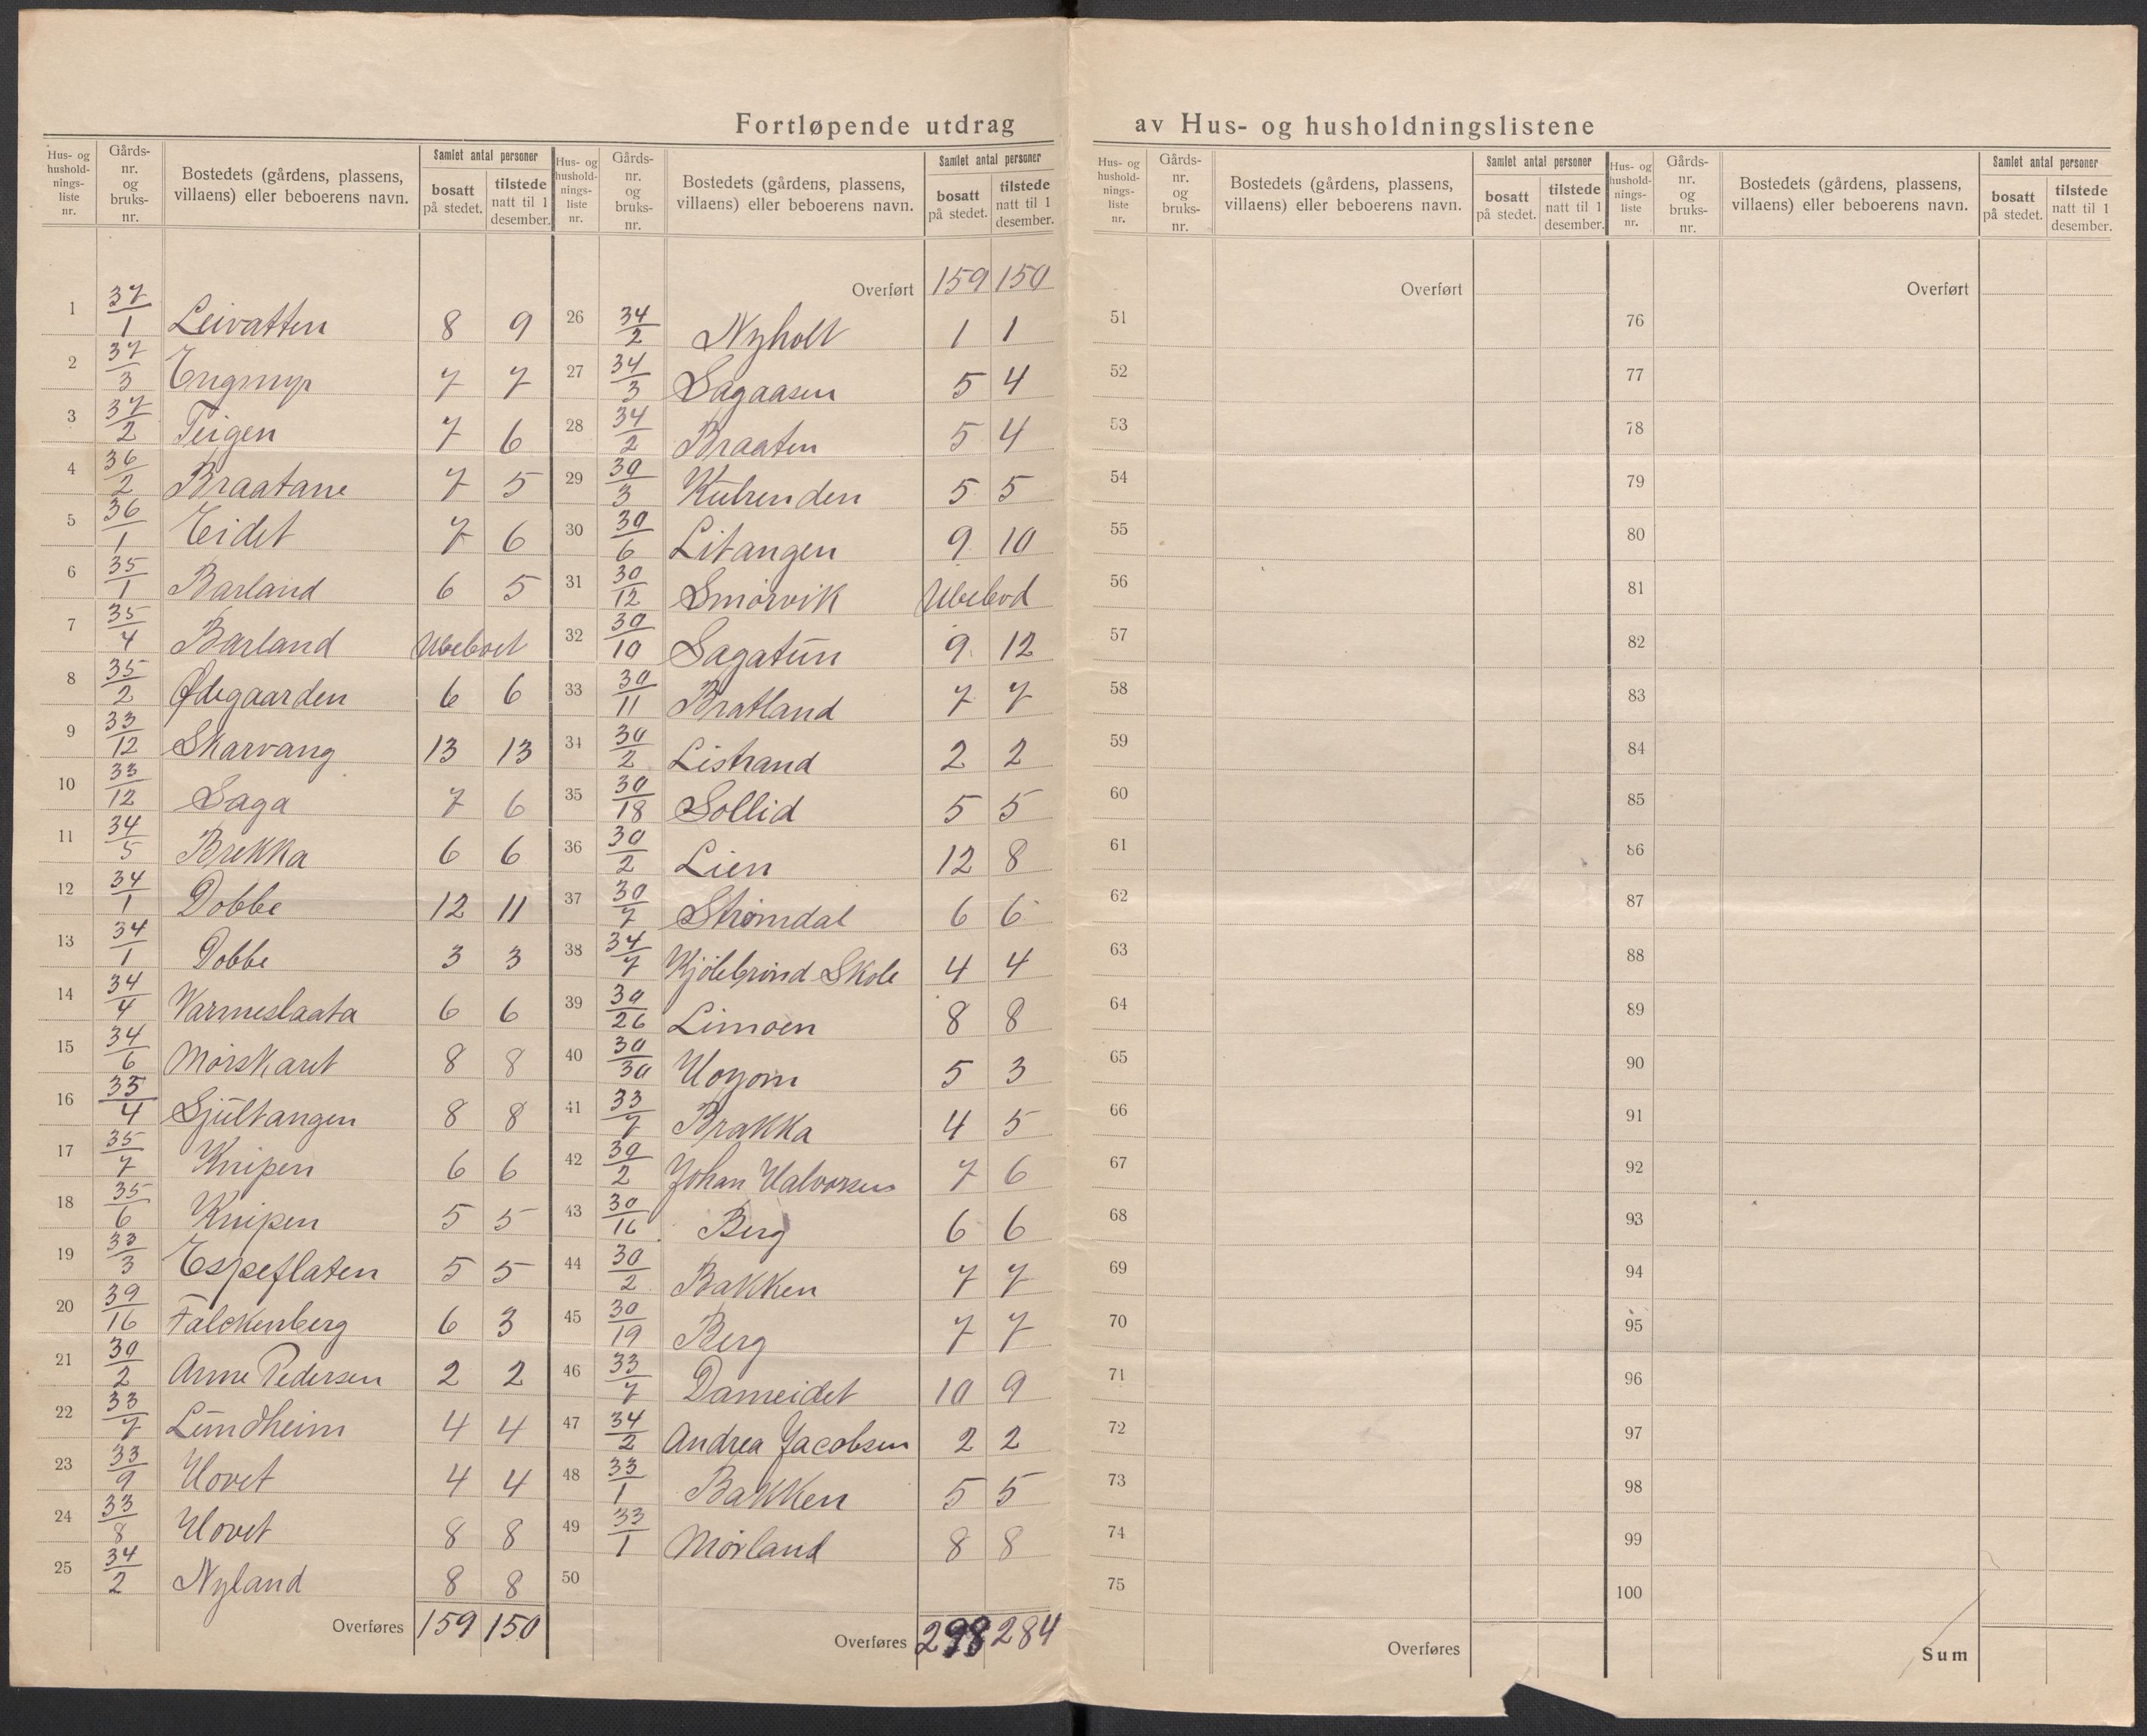 Fortløpende utdrag av Hus- og husholdningslistene
Hus- og husholdningsliste nr. | Gårdsnr. og bruksnr. | Bostedets (gårdens, plassens, villaens) eller beboerens navn. | Samlet antal personer bosatt på stedet. | tilstede natt til 1 desember.
1 37/1 Leivatten 8 9
2 37/3 Engmyr 7 7
3 37/2 Teigen 7 6
4 36/2 Braatane 7 5
5 36/1 Eidet 7 6
6 35/1 Barland 6 5
7 35/4 Barland Ubeboet
8 35/2 Ødegaarden 6 6
9 33/12 Skarvang 13 13
10 33/12 Saga 7 6
11 34/5 Brekka 6 6
12 34/1 Dobbe 12 11
13 34/1 Dobbe 3 3
14 34/4 Varmeslaata 6 6
15 34/6 Mørskaret 8 8
16 35/4 Sjultangen 8 8
17 35/7 Knipen 6 6
18 35/6 Knipen 5 5
19 33/3 Espeflaten 5 5
20 39/16 Falckenberg 6 3
21 30/2 Anne Pedersen 2 2
22 33/7 Lundheim 4 4
23 33/9 Hovet 4 4
24 33/8 Hovet 8 8
25 34/2 Nyland 8 8
Overføres 159 150
Hus- og husholdningsliste nr. | Gårdsnr. og bruksnr. | Bostedets (gårdens, plassens, villaens) eller beboerens navn. | Samlet antal personer bosatt på stedet. | tilstede natt til 1 desember.
Overført 159 150
26 34/2 Nyholt 1 1
27 34/3 Sagaasen 5 4
28 34/2 Braaten 5 4
29 30/3 Kubrenden 5 5
30 30/6 Litangen 9 10
31 30/12 Smørvik Ubebod
32 30/10 Sagatun 9 12
33 30/11 Bratland 7 7
34 30/2 Listrand 2 2
35 30/18 Sollid 5 5
36 30/2 Lien 12 8
37 30/7 Strømdal 6 6
38 34/7 Kjølebrønd Skole 4 4
39 30/26 Limoen 8 8
40 30/30 5 3
41 33/7 Brakka 4 5
42 30/2 Johan Halvorsen 7 6
43 30/16 Berg 6 6
44 30/2 Bakken 7 7
45 30/19 Berg 7 7
46 33/7 Dameidet 10 9
47 34/2 Andrea Jacobsen 2 2
48 33/1 Bakken 5 5
49 33/1 Mørland 8 8
50
Overføres 298 284
Hus- og husholdningsliste nr. | Gårdsnr. og bruksnr. | Bostedets (gårdens, plassens, villaens) eller beboerens navn. | Samlet antal personer bosatt på stedet. | tilstede natt til 1 desember.
Overført
51
52
53
54
55
56
57
58
59
60
61
62
63
64
65
66
67
68
69
70
71
72
73
74
75
Overføres
Hus- og husholdningsliste nr. | Gårdsnr. og bruksnr. | Bostedets (gårdens, plassens, villaens) eller beboerens navn. | Samlet antal personer bosatt på stedet. | tilstede natt til 1 desember.
Overført
76
77
78
79
80
81
82
83
84
85
86
87
88
89
90
91
92
93
94
95
96
97
98
99
100
Sum